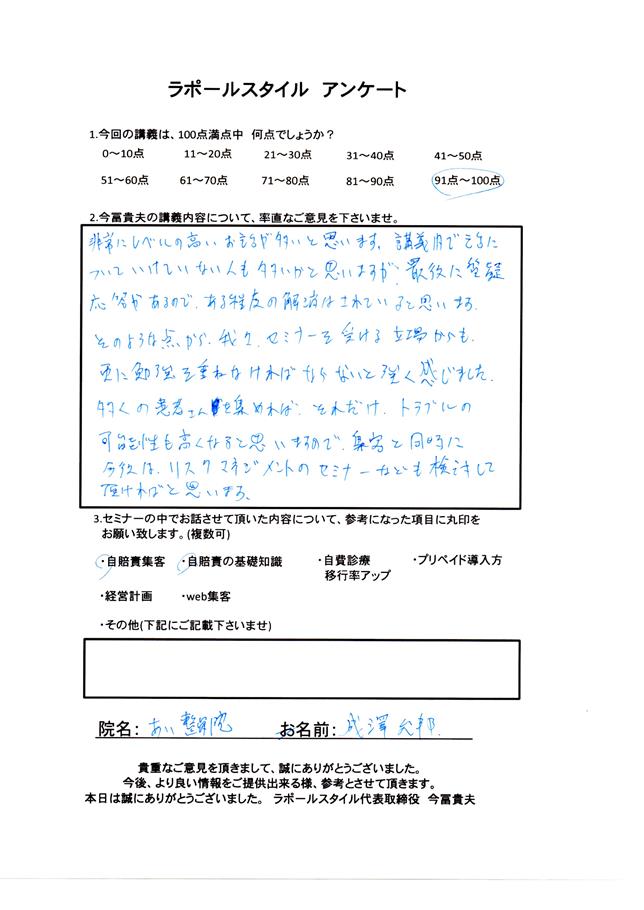 ラポールスタイル　アンケート
1.今回の講義は、100点満点中　何点でしょうか？
0～10点　11～20点　21～30点　31～40点　41～50点
51～60点　61～70点　71～80点　81～90点　91点～100点
2.今冨貴夫の講義内容について、率直なご意見を下さいませ。
非常にレベルの高いお話が多いと思います。講義内で
ついていけていない人も多いかと思いますが、最後に質疑
応答があるので、ある程度の解消はされていると思います。
そのような点から、我々、セミナーを受ける立場からも、
更に勉強を重ねなければならないと強く感じました。
多くの患者さんを集めれば、それだけ、トラブルの
可能性も高くなると思いますので、集客と同時に
今後は、リスクマネジメントのセミナーなども検討して
頂ければと思います。
3.セミナーの中でお話させて頂いた内容について、参考になった項目に丸印を
お願い致します。(複数可)
・自賠責集客　・自賠責の基礎知識　・自費診療　・プリペイド導入方
移行率アップ
・経営計画　・web集客
・その他(下記にご記載下さいませ)
院名：あい整骨院　お名前：成澤允邦
貴重なご意見を頂きまして、誠にありがとうございました。
今後、より良い情報をご提供出来る様、参考とさせて頂きます。
本日は誠にありがとうございました。　ラポールスタイル代表取締役　今冨貴夫